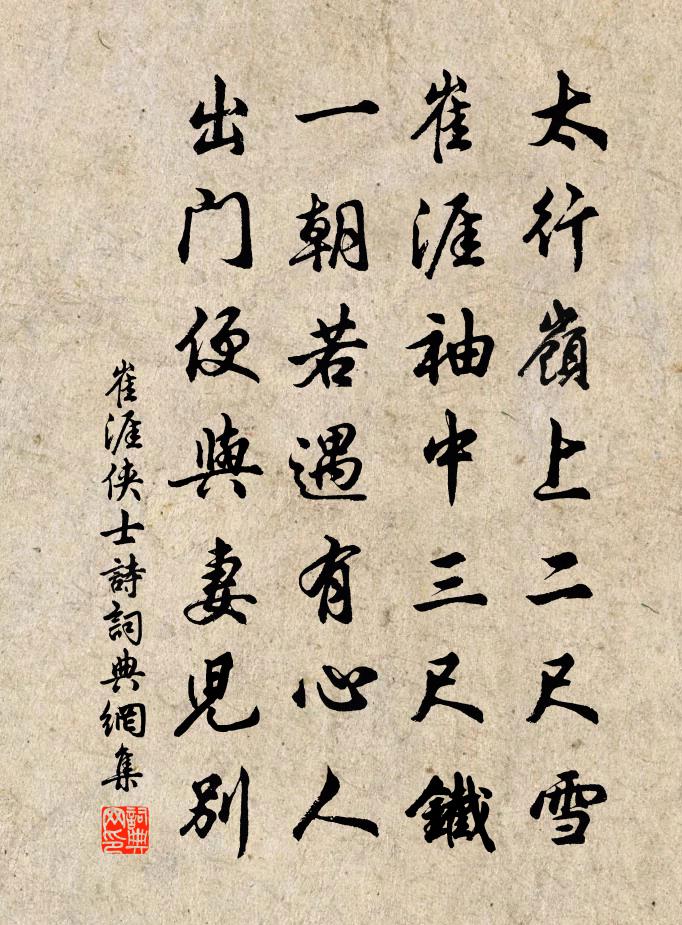 太行嶺上二尺雪
崔涯袖中三尺鐵
一朝若遇有心人
出门便與妻兒别
崔涯俠士詩詞典網集
詞典
网印